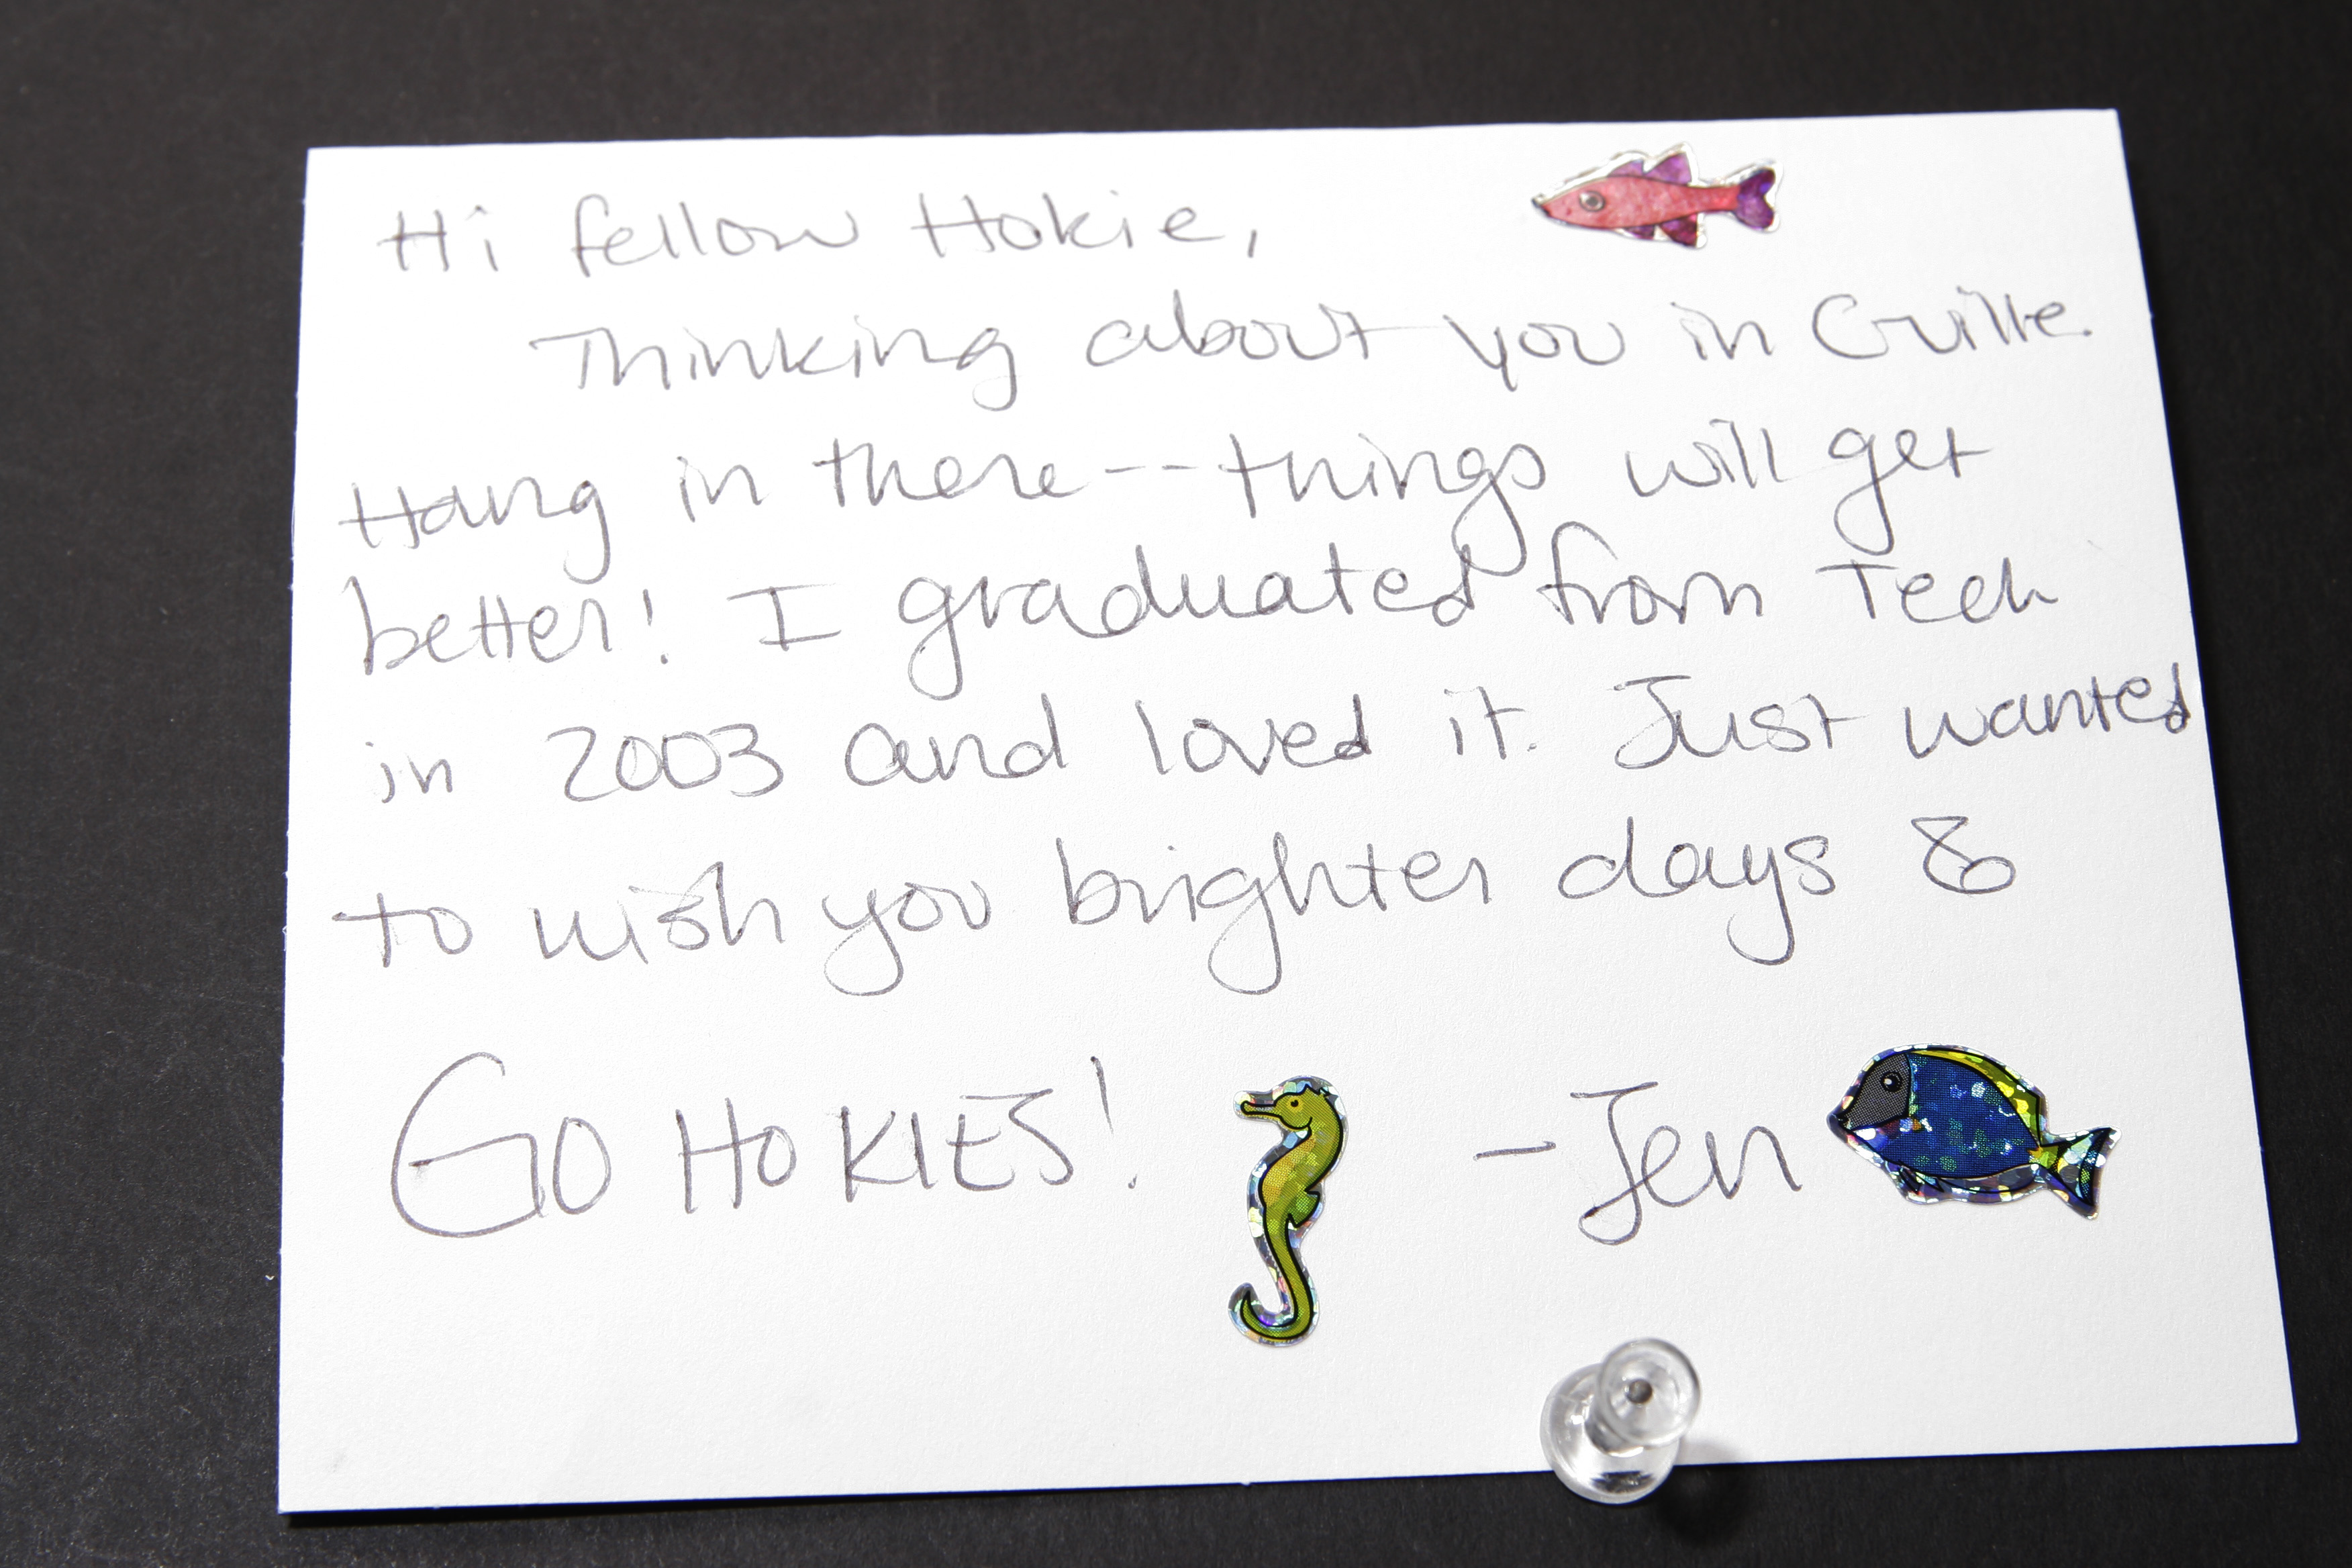 Hi fellow Hokie,
Thinking about you in Cville.
Hang in there -- things will get
better! I graduated from Tech
in 2003 and loved it. Just wanted
to wish you brighter days &
GO HOKIES! - Jen